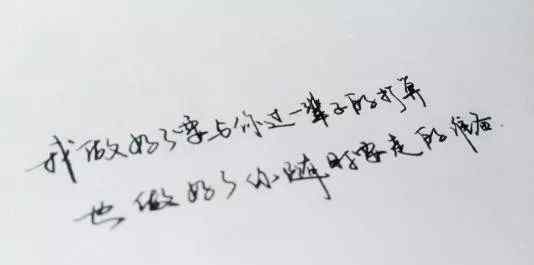 我做好了要与你过一辈子的打算
也做好了你随时要走的准备